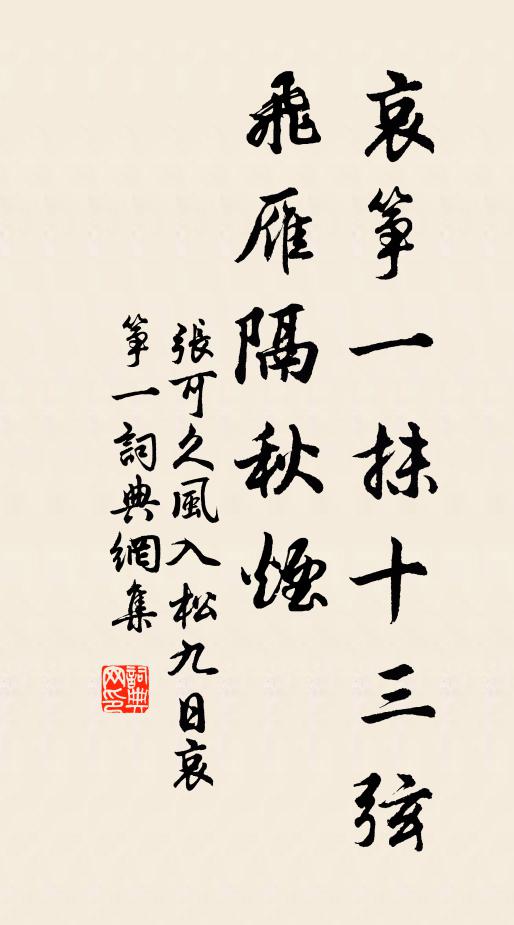 哀筝一抹十三弦
飛雁隔秋煙
張可久風入松九日哀
筝一詞典網集
詞典
网印